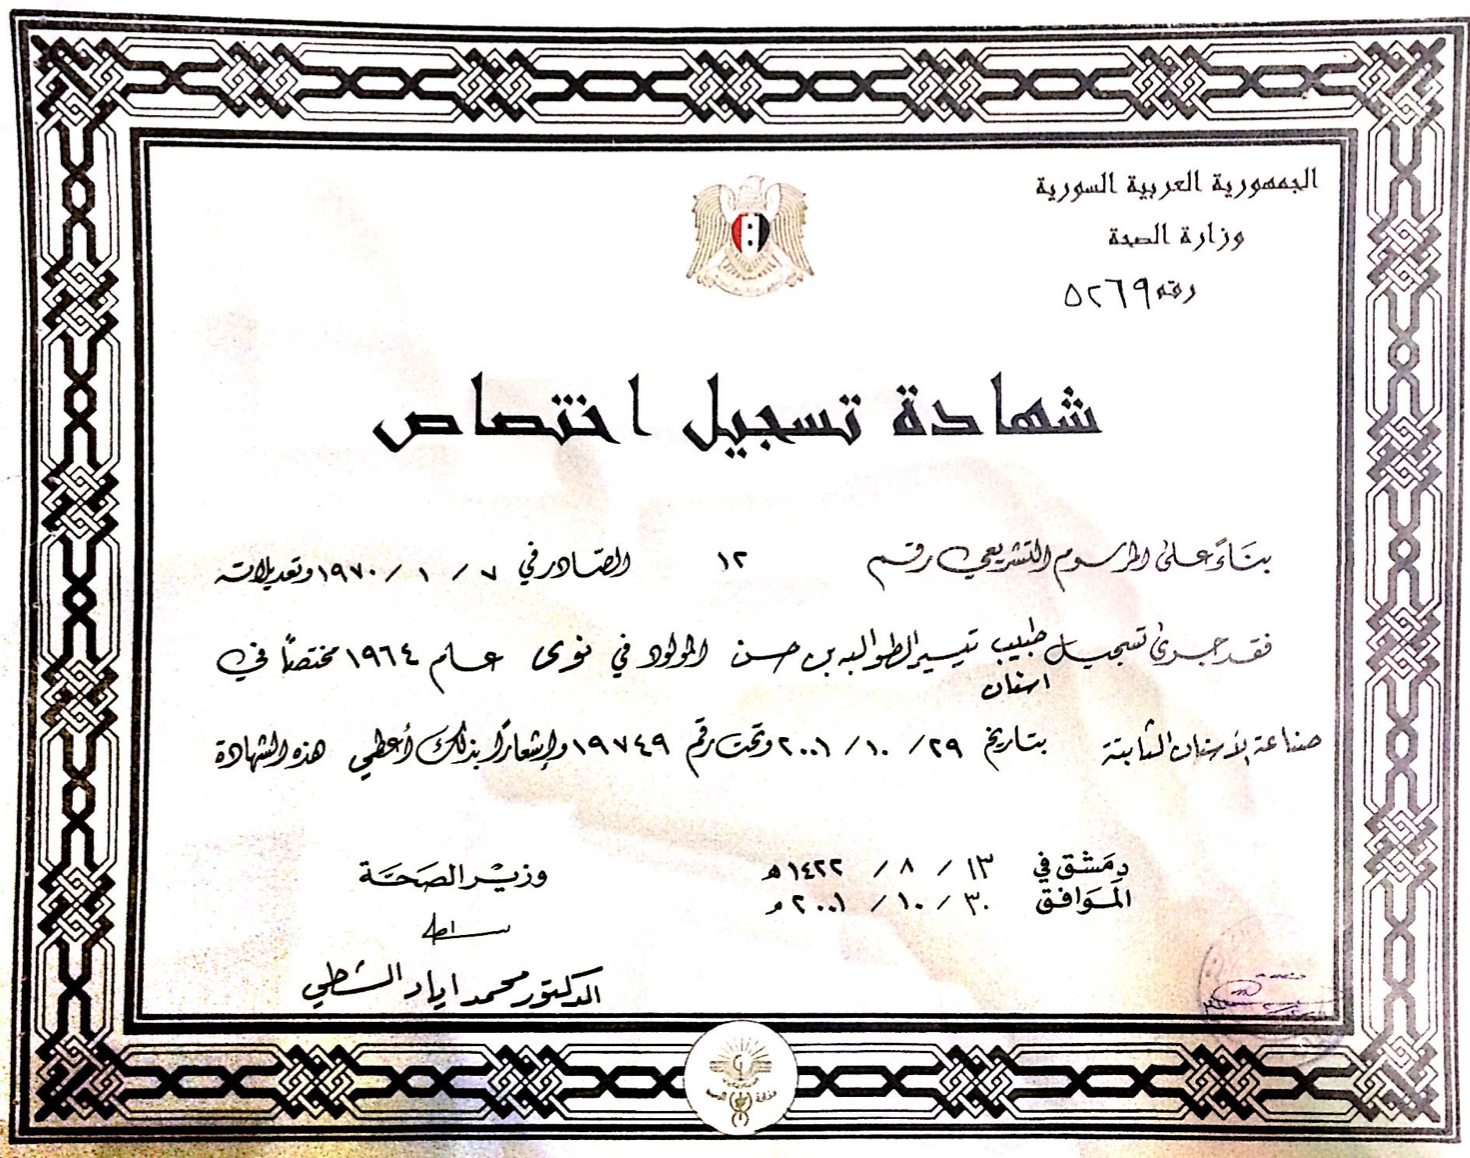 الجمهورية العربية السورية
وزارة الصحة
رقم ٥٢٦٩
شهادة تسجيل اختصاص
بناءً على المرسوم التشريعي رقم ١٢ الصادر في ٧ / ١ / ١٩٧٠ وتعديلاته
فقد جرى تسجيل طبيب اسنان تيسير الطوالبه بن حسن المولود في نوى عام ١٩٦٤ مختصاً في
صناعة الأسنان الثابتة بتاريخ ٢٩ / ١٠ / ٢٠٠١ وتحت رقم ١٩٧٤٩ وإشعاراً بذلك أعطي هذه الشهادة
دمشق في ١٣ / ٨ / ١٤٢٢ هـ
الموافق ٣٠ / ١٠ / ٢٠٠١ م
وزير الصحة
الدكتور محمد اياد الشطي
وزارة الصحة